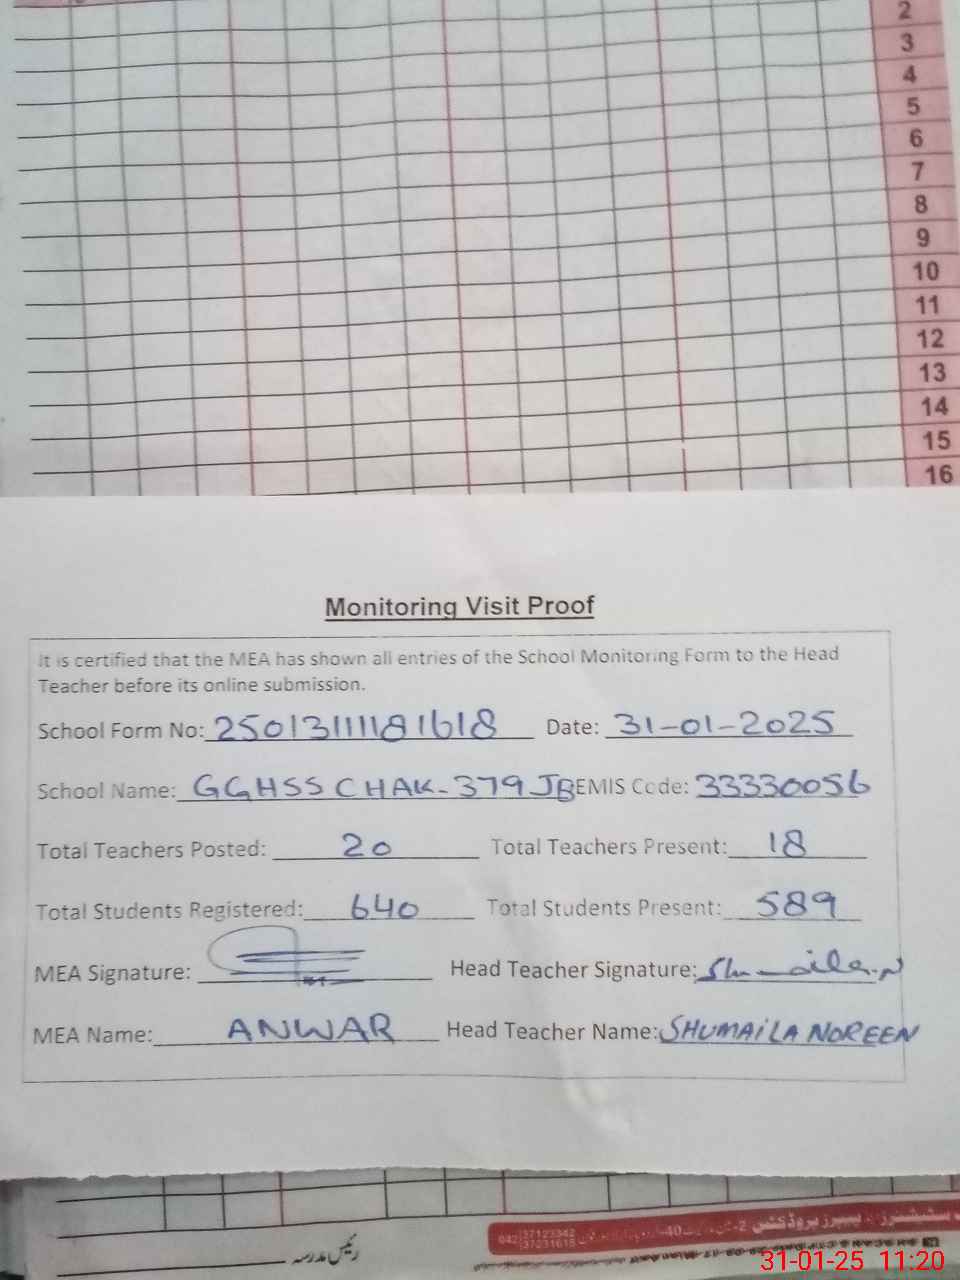 2
3
4
5
6
7
8
9
10
11
12
13
14
15
16
Monitoring Visit Proof
It is certified that the MEA has shown all entries of the School Monitoring Form to the Head
Teacher before its online submission.
School Form No: 2501311181618 Date: 31-01-2025
School Name: GGHSS CHAK-379 JB EMIS Code: 33330056
Total Teachers Posted: 20 Total Teachers Present: 18
Total Students Registered: 640 Total Students Present: 589
MEA Signature: Head Teacher Signature: Shumaila.N
MEA Name: ANWAR Head Teacher Name: SHUMAILA NOREEN
پیپرز پروڈکٹس
042
37123342
37231618
رئیس مدرسہ
31-01-25 11:20